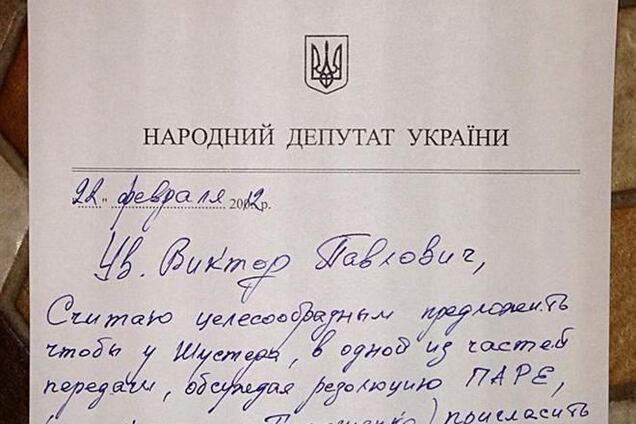 НАРОДНИЙ ДЕПУТАТ УКРАЇНИ
"22" февраля 2012р.
Ув. Виктор Павлович,
Считаю целесообразным предложить
чтобы у Шустера, в одной из частей
передачи, обсуждая резолюцию ПАРЕ,
) пригласить